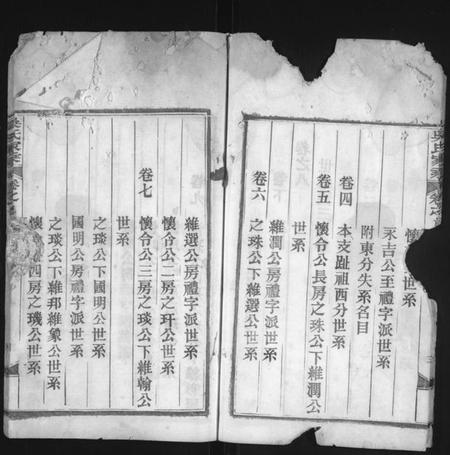 懷
世系
永吉公至禮字派世系
附東分失系名目
卷四
本支趾祖西分世系
卷五
懷令公長房之珠公下維潤公
世系
維潤公房禮字派世系
卷六
之珠公下維選公世系
維選公房禮字派世系
懷令公二房之玕公世系
卷七
懷令公三房之琰公下維翰公
世系
之琰公下國明公世系
國明公房禮字派世系
之琰公下維邦維象公世系
懷令公四房之璣公世系